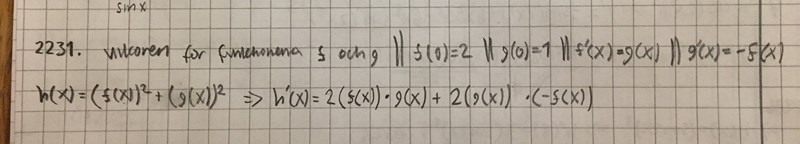 sin x
2231. villkoren för funktionerna f och g || f(0)=2 || g(0)=1 || f'(x)=g(x) || g'(x)=-f(x)
h(x)=(f(x))²+(g(x))² ⇒ h'(x)=2(f(x))·g(x)+2(g(x))·(-f(x))